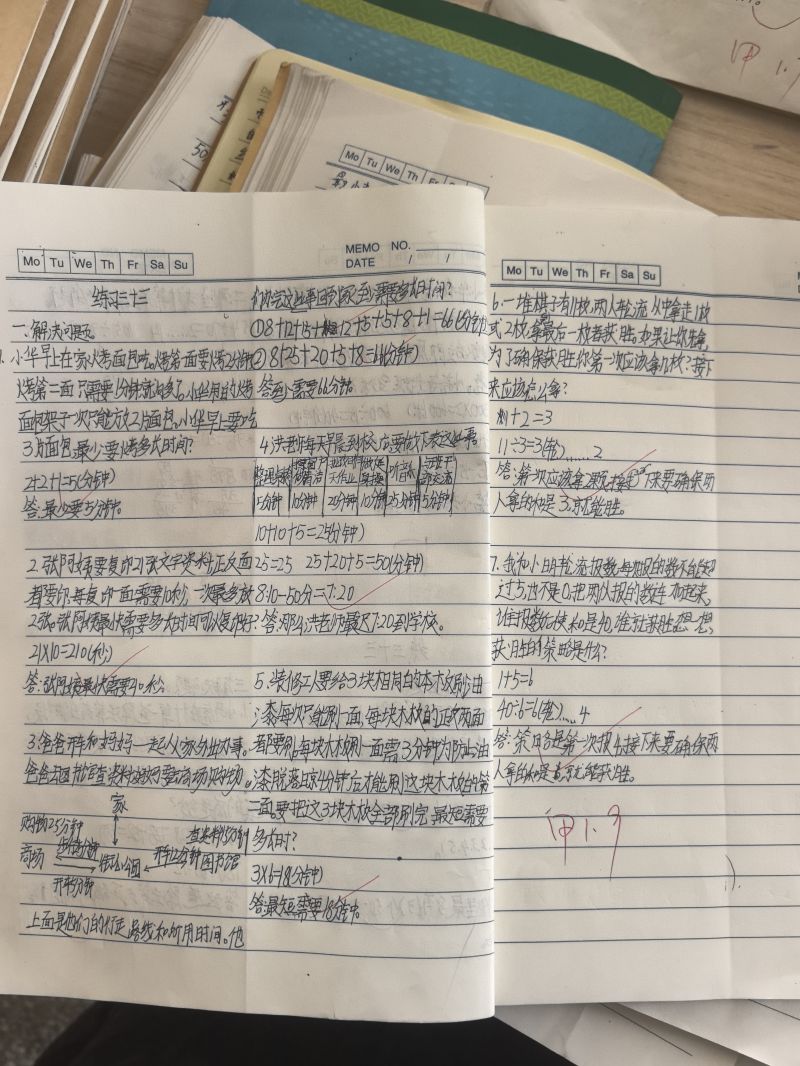 Mo Tu We Th Fr
Mo Tu We Th Fr Sa Su
MEMO NO.
DATE / /
练习三十三
一、解决问题。
1. 小华早上在家烤面包吃。烤第一面要烤2分钟
烤第二面只需要1分钟就够了。小华用的烤
面包架子一次只能放2片面包。小华早上要吃
3片面包,最少要烤多长时间?
2+2+1=5(分钟)
答:最少要5分钟。
2. 张阿姨要复印21张文字资料,正反面
都要印,每复印一面需要10秒,一次最多放
2张。张阿姨最快需要多长时间可以复印好?
21×10=210(秒)
答:张阿姨最快需要210秒。
3. 爸爸开车和妈妈一起从家外出办事。
爸爸去图书馆查资料,妈妈要去商场购物。
家
购物25分钟
查资料15分钟
商场
开车12分钟 图书馆
开车8分钟
上面是他们的行走路线和所用时间。他
们办完这些事回到家至少需要多长时间?
①8+12+15+12+5+5+8+1=66(分钟)
②8+25+20+5+8=66(分钟)
答:至少需要66分钟。
4. 洪老师每天早晨到校后要做下表这些事。
5分钟 10分钟 20分钟 10分钟 25分钟 5分钟
10+10+5=25(分钟)
25=25 25+20+5=50(分钟)
8:10-50分=7:20
答:那么洪老师最迟7:20到学校。
5. 装修工人要给3块相同的木板刷油
漆,每次只能刷一面,每块木板的正反两面
都要刷。每块木板刷一面需3分钟,为防止油
漆脱落,晾6分钟后才能刷这块木板的第
二面。要把这3块木板全部刷完,最短需要
多长时?
3×6=18(分钟)
答:最短需要18分钟。
Mo Tu We Th Fr Sa Su
6. 一堆棋子有11枚,两人轮流从中拿走1枚
或2枚,拿最后一枚者获胜。如果让你先拿,
为了确保获胜,你第一次应该拿几枚?接下
来应该怎么拿?
1+2=3
11÷3=3(轮)……2
答:第一次应该拿2颗,接下来要确保两
人拿的和是3,就能胜。
7. 我和小明轮流报数,每次报的数不能超
过5,也不是0,把两人报的数连加起来,
谁报数后使和是40,谁就获胜。想一想,
获胜的策略是什么?
1+5=6
40÷6=6(轮)……4
答:策略是第一次报4,接下来要确保两
人拿的和是6,就能获胜。
甲 1.7